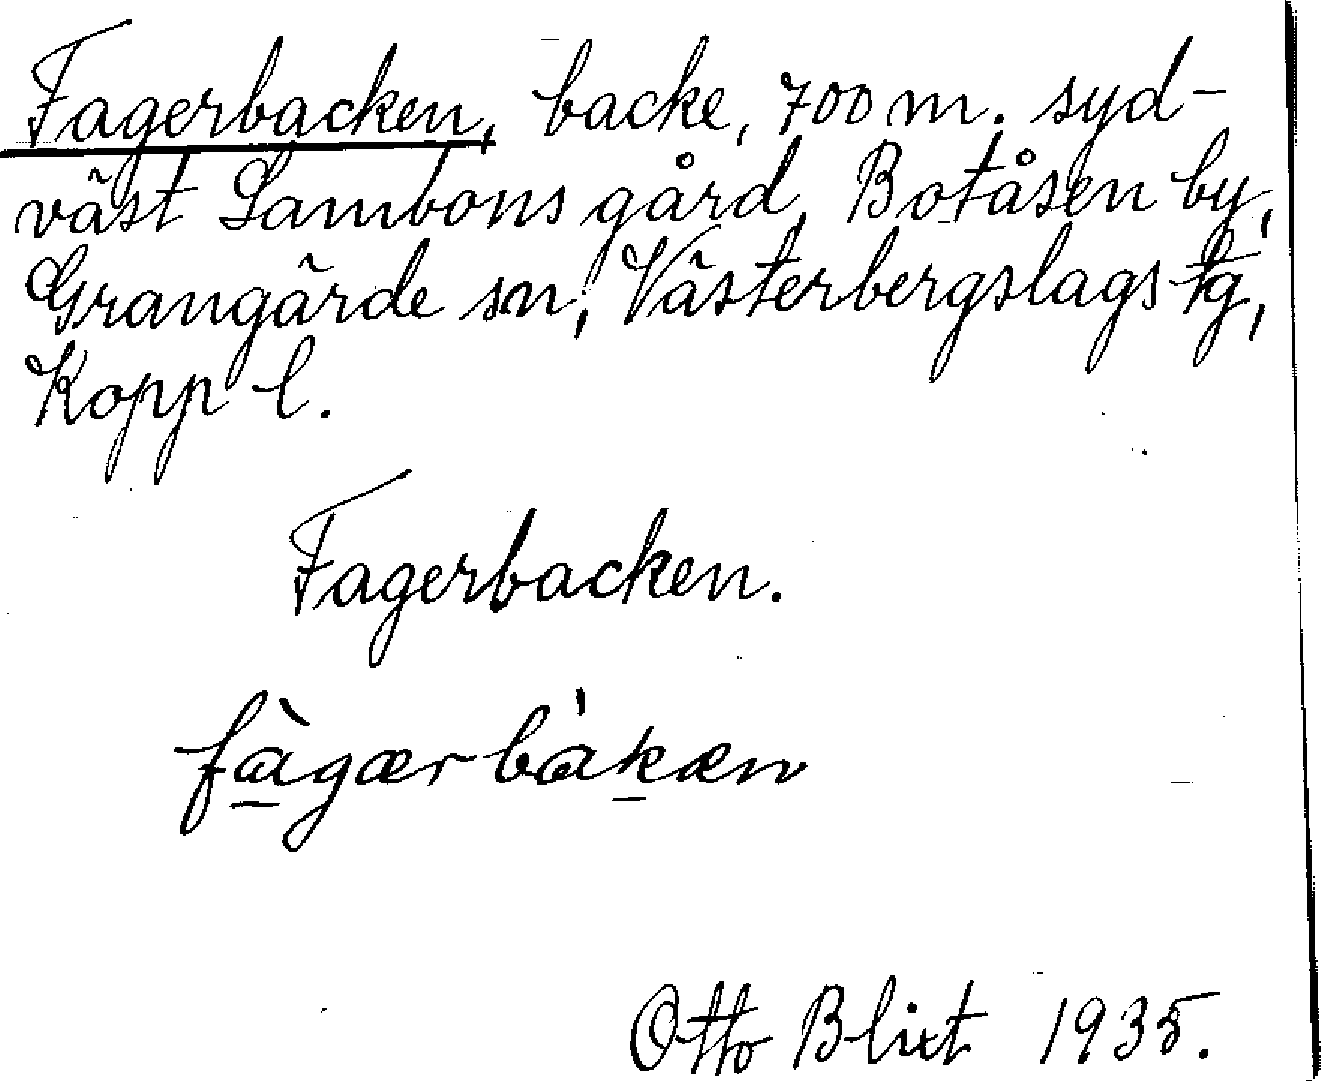 Fagerbacken, backe, 700 m. syd-
väst Lambons gård, Botåsen by,
Grangärde sn, Västerbergslags tg,
Kopp l.
Fagerbacken.
fàgær bàkæn
Otto Blixt 1935.